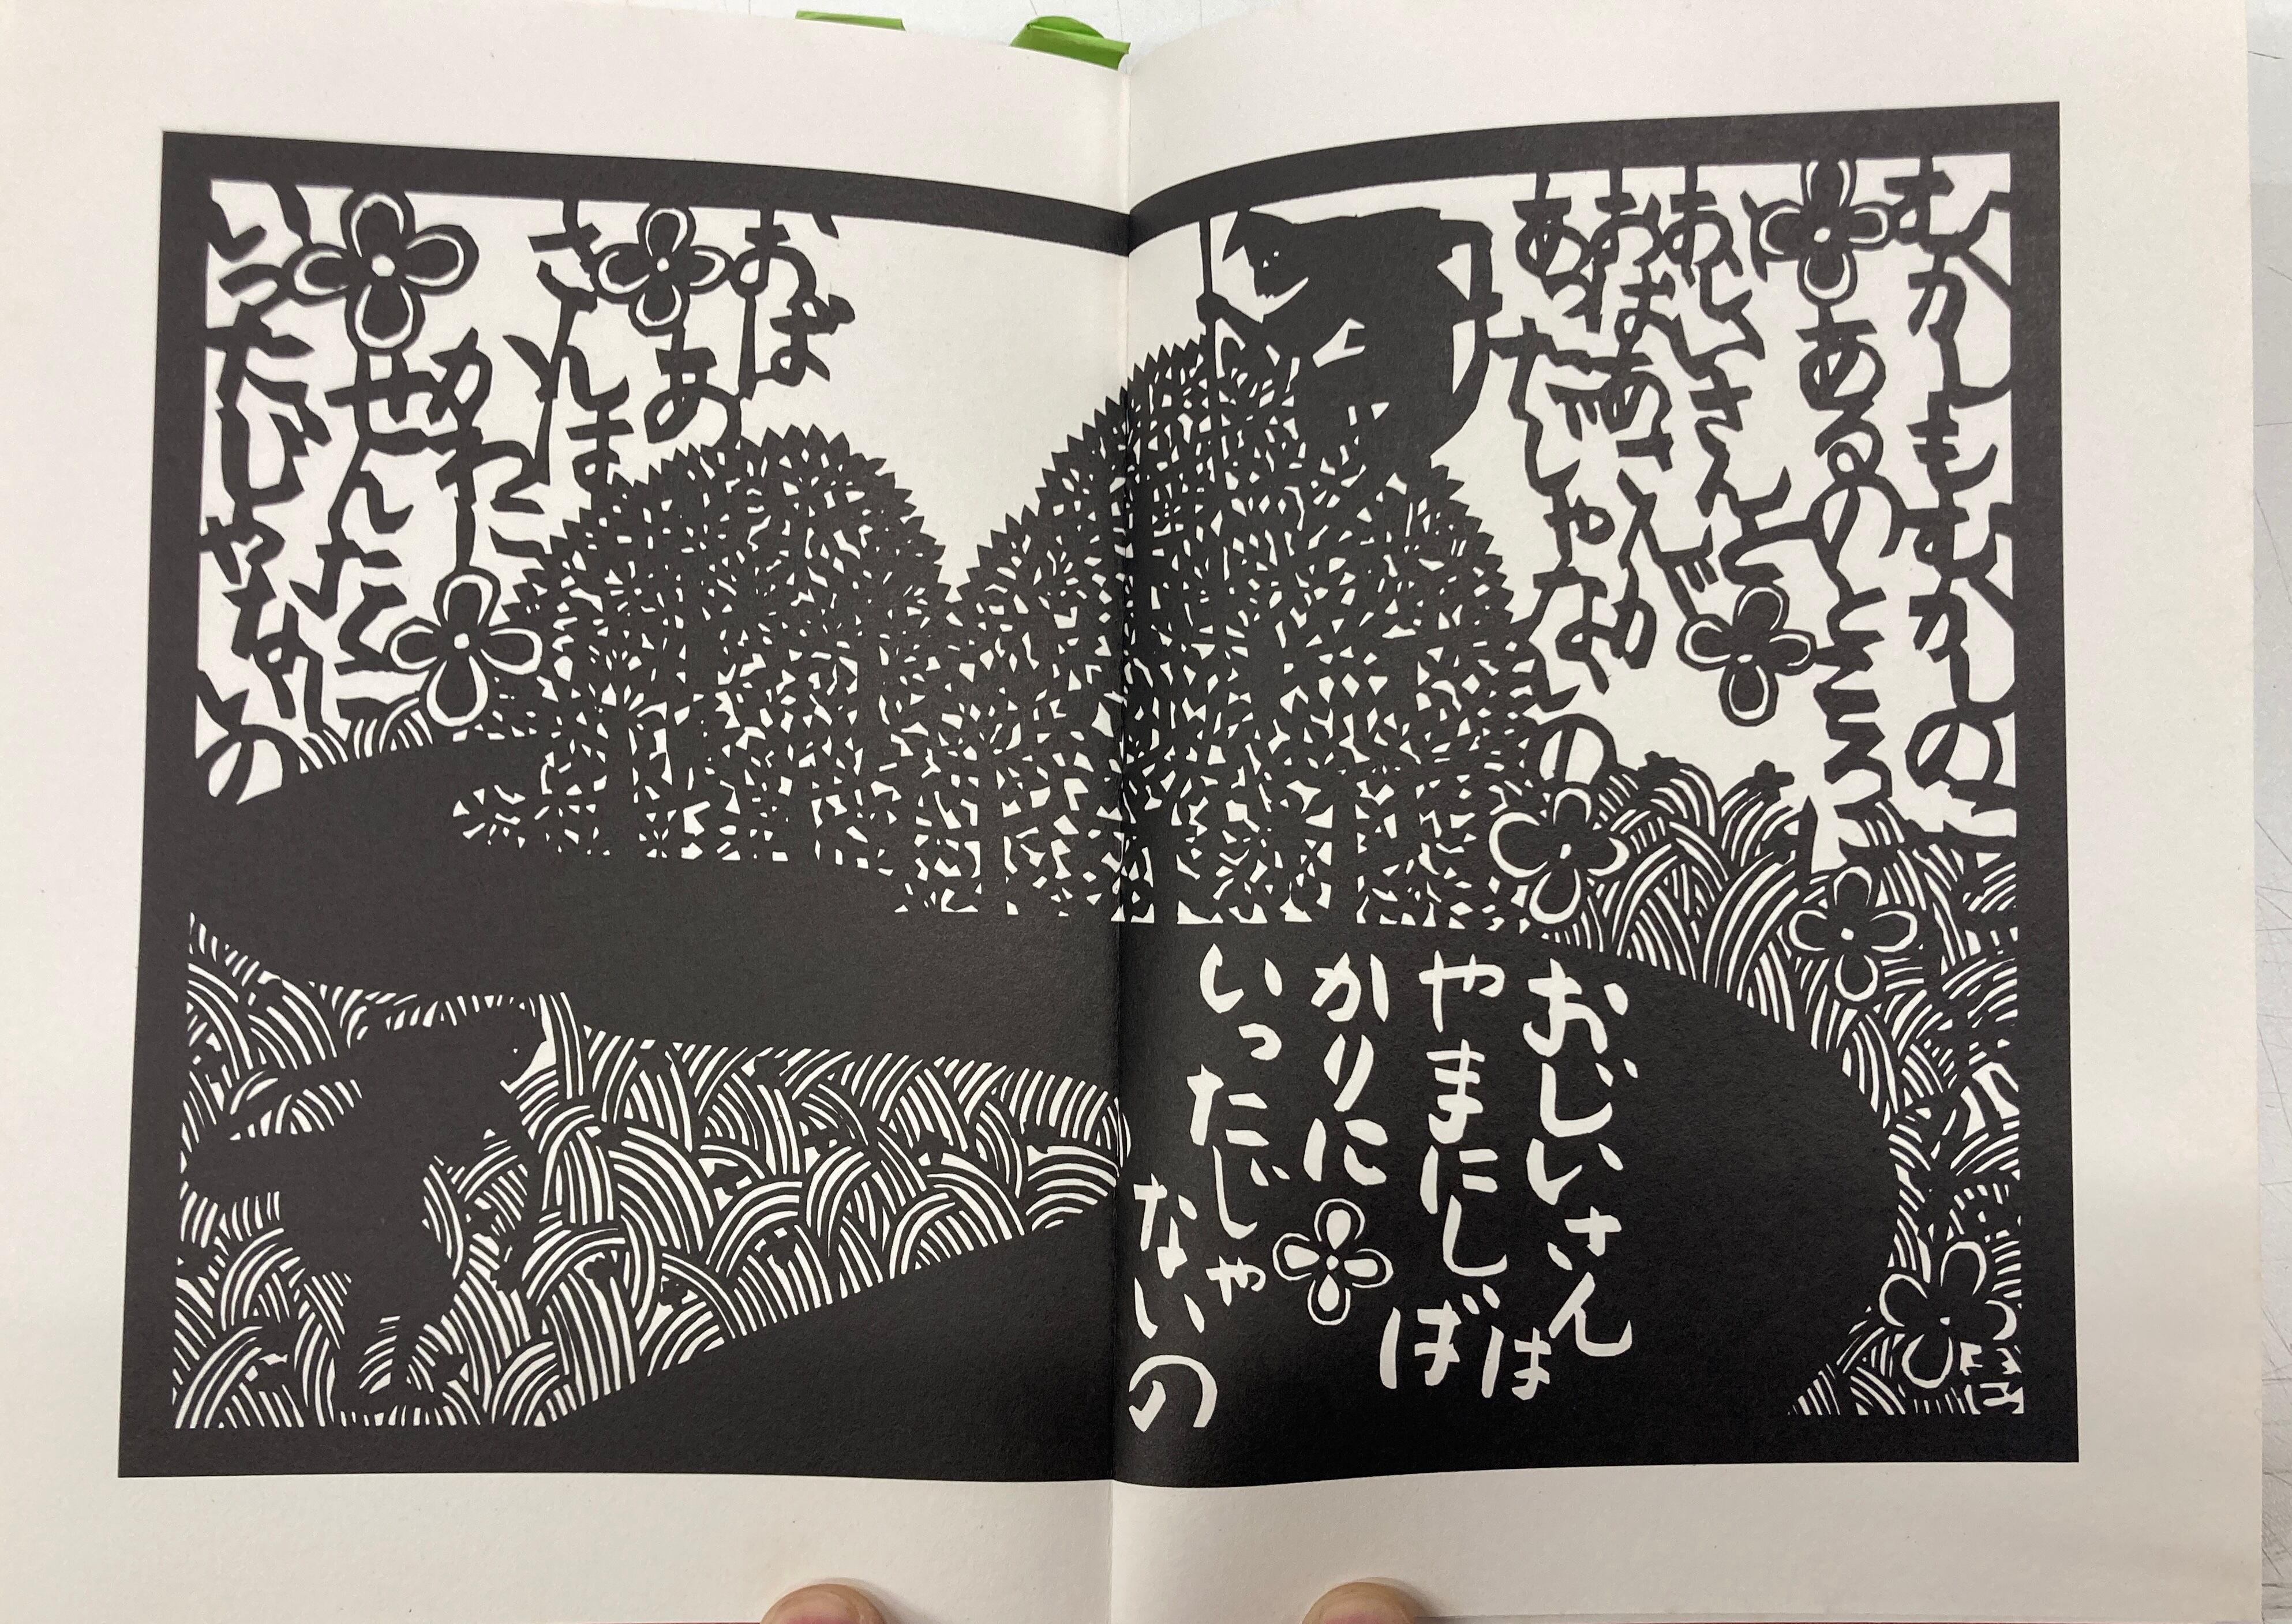 むかしもむかしの
あるのところに
おじいさんと
おばあさんが
あったじゃないの
おじいさんは
やまにしば
かりに
いったじゃ
ないの
おば
あ
さんは
かわに
せんたくに
いったじゃないの